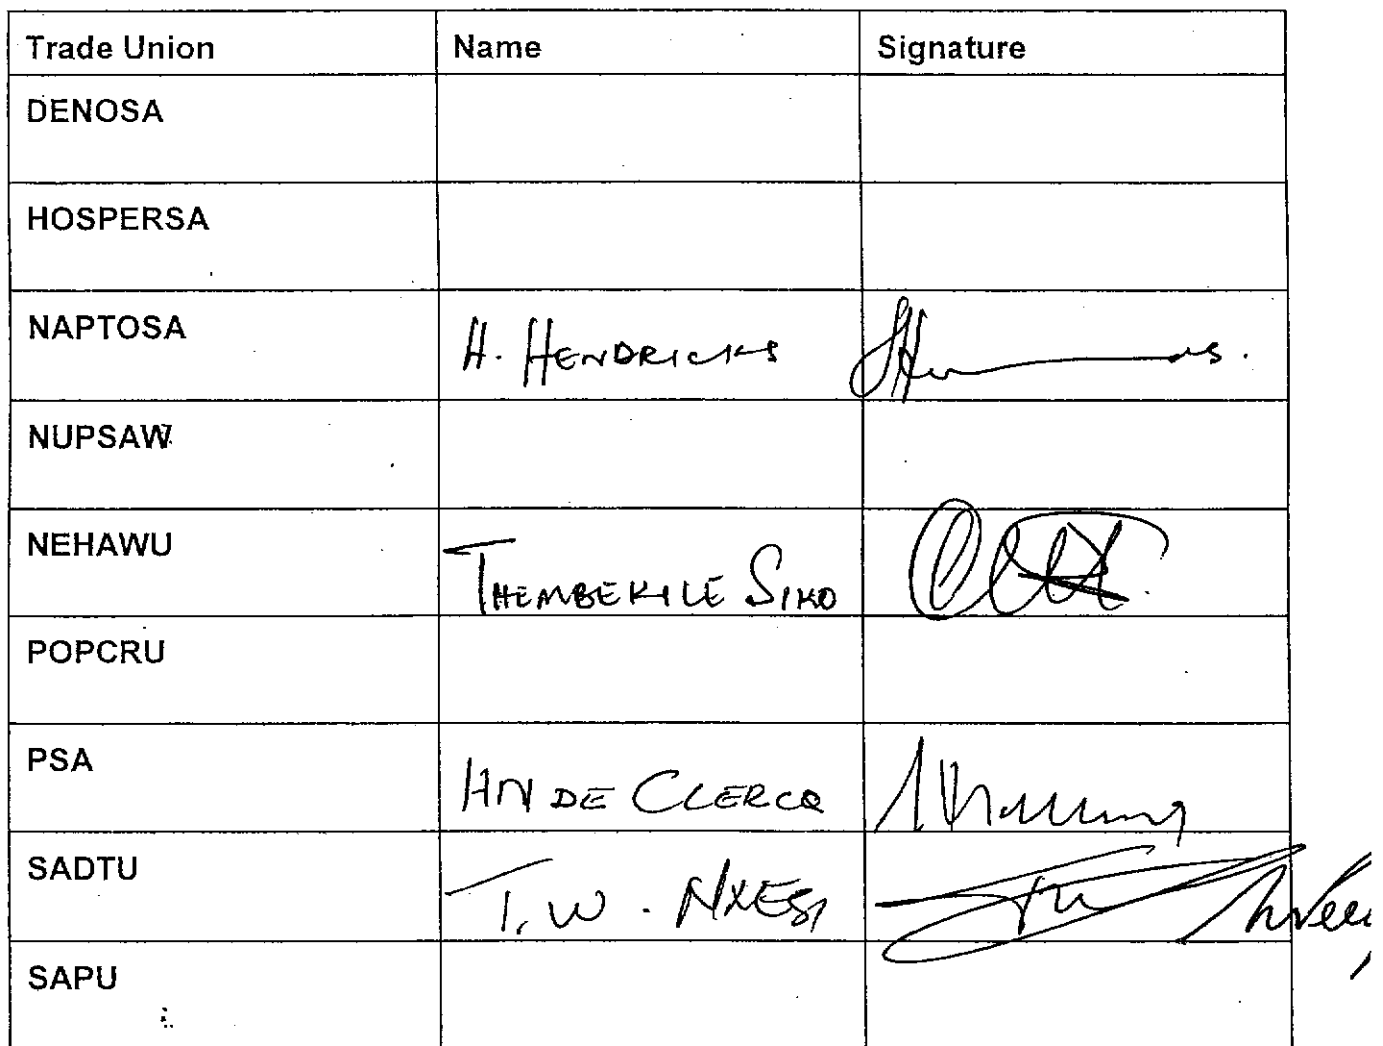 Trade Union Name Signature
DENOSA
HOSPERSA
NAPTOSA H. HENDRICKS
NUPSAW
NEHAWU THEMBEKILE SIKO
POPCRU
PSA HN DE CLERCQ
SADTU T.W. NXESI
SAPU